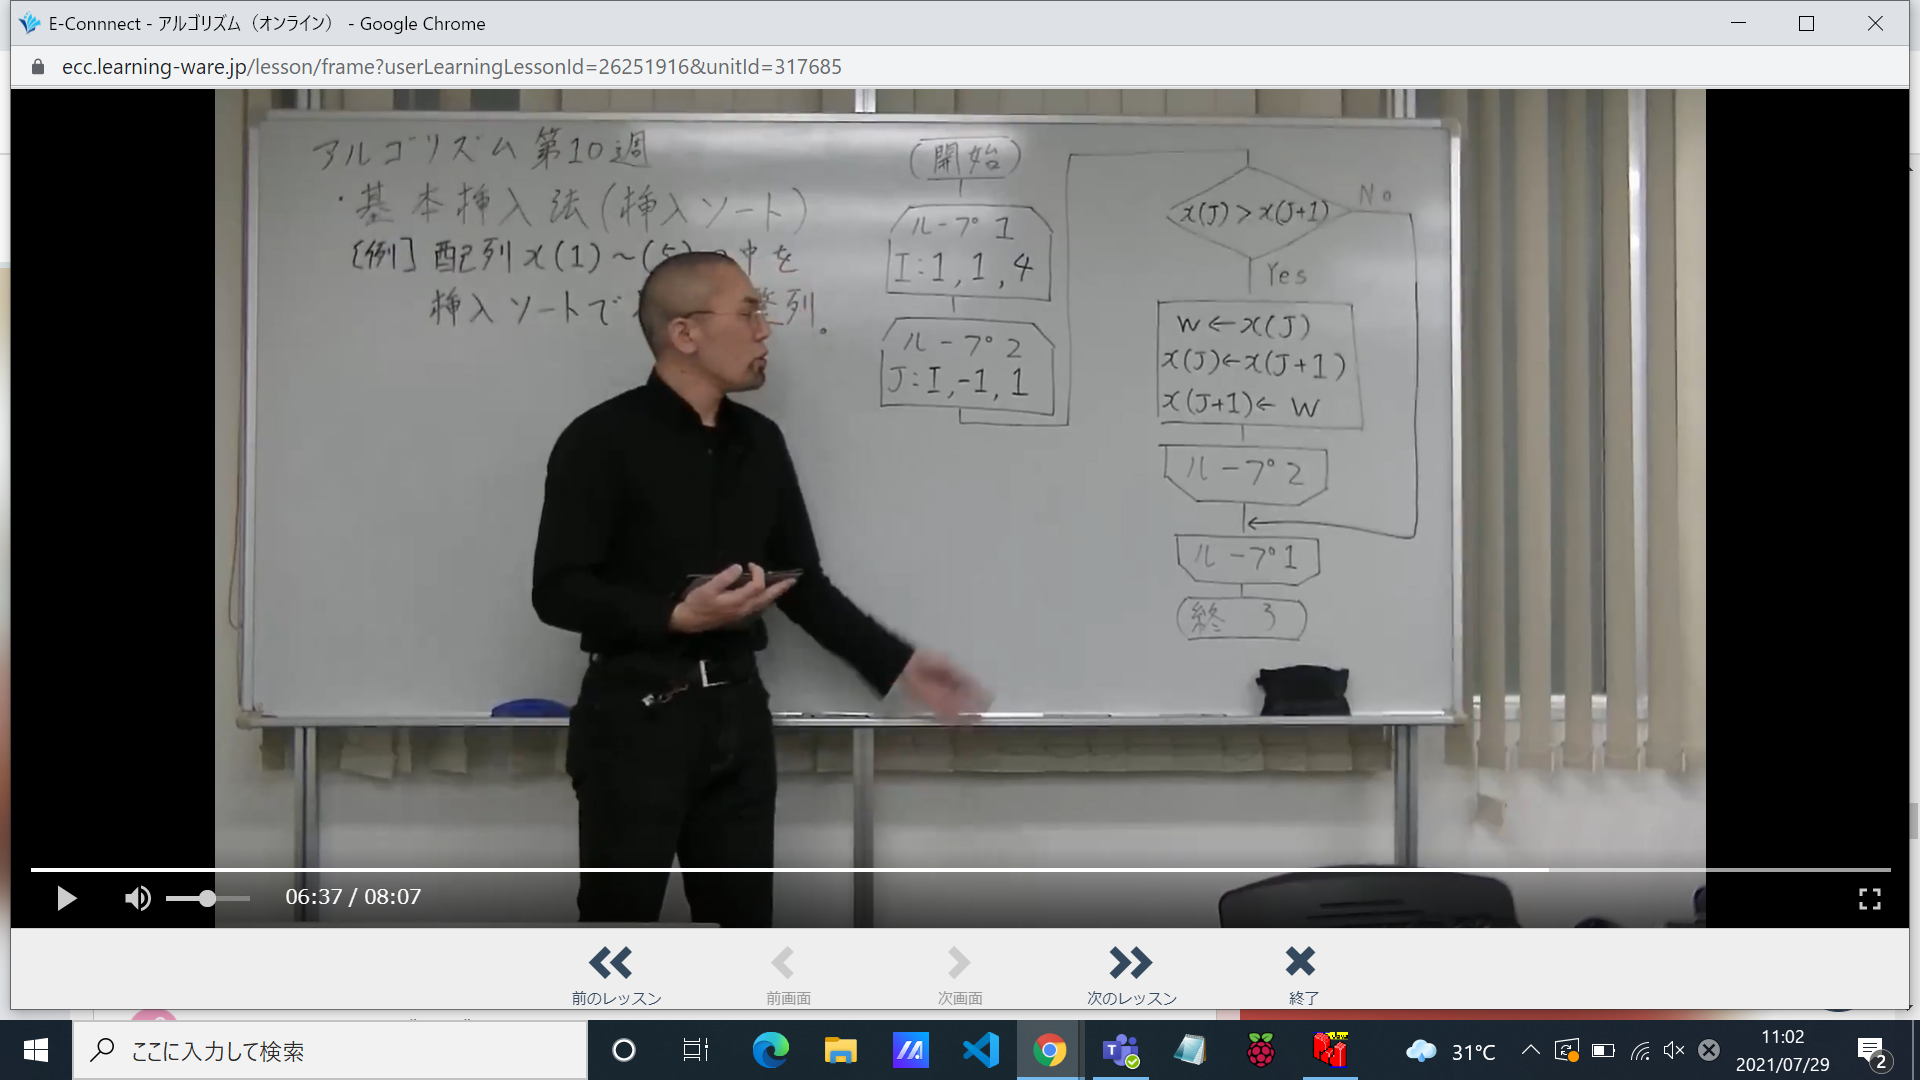 E-Connnect - アルゴリズム（オンライン） - Google Chrome
ecc.learning-ware.jp/lesson/frame?userLearningLessonId=26251916&unitId=317685
アルゴリズム 第10週
・基本挿入法(挿入ソート)
[例] 配列 x(1)～(5) 中を
挿入ソートで 整列。
(開始)
ループ1
I:1,1,4
ループ2
J:I,-1,1
x(J)>x(J+1)
No
Yes
W←x(J)
x(J)←x(J+1)
x(J+1)←W
ループ2
ループ1
終了
06:37 / 08:07
前のレッスン
前画面
次画面
次のレッスン
終了
ここに入力して検索
31°C
11:02
2021/07/29
2